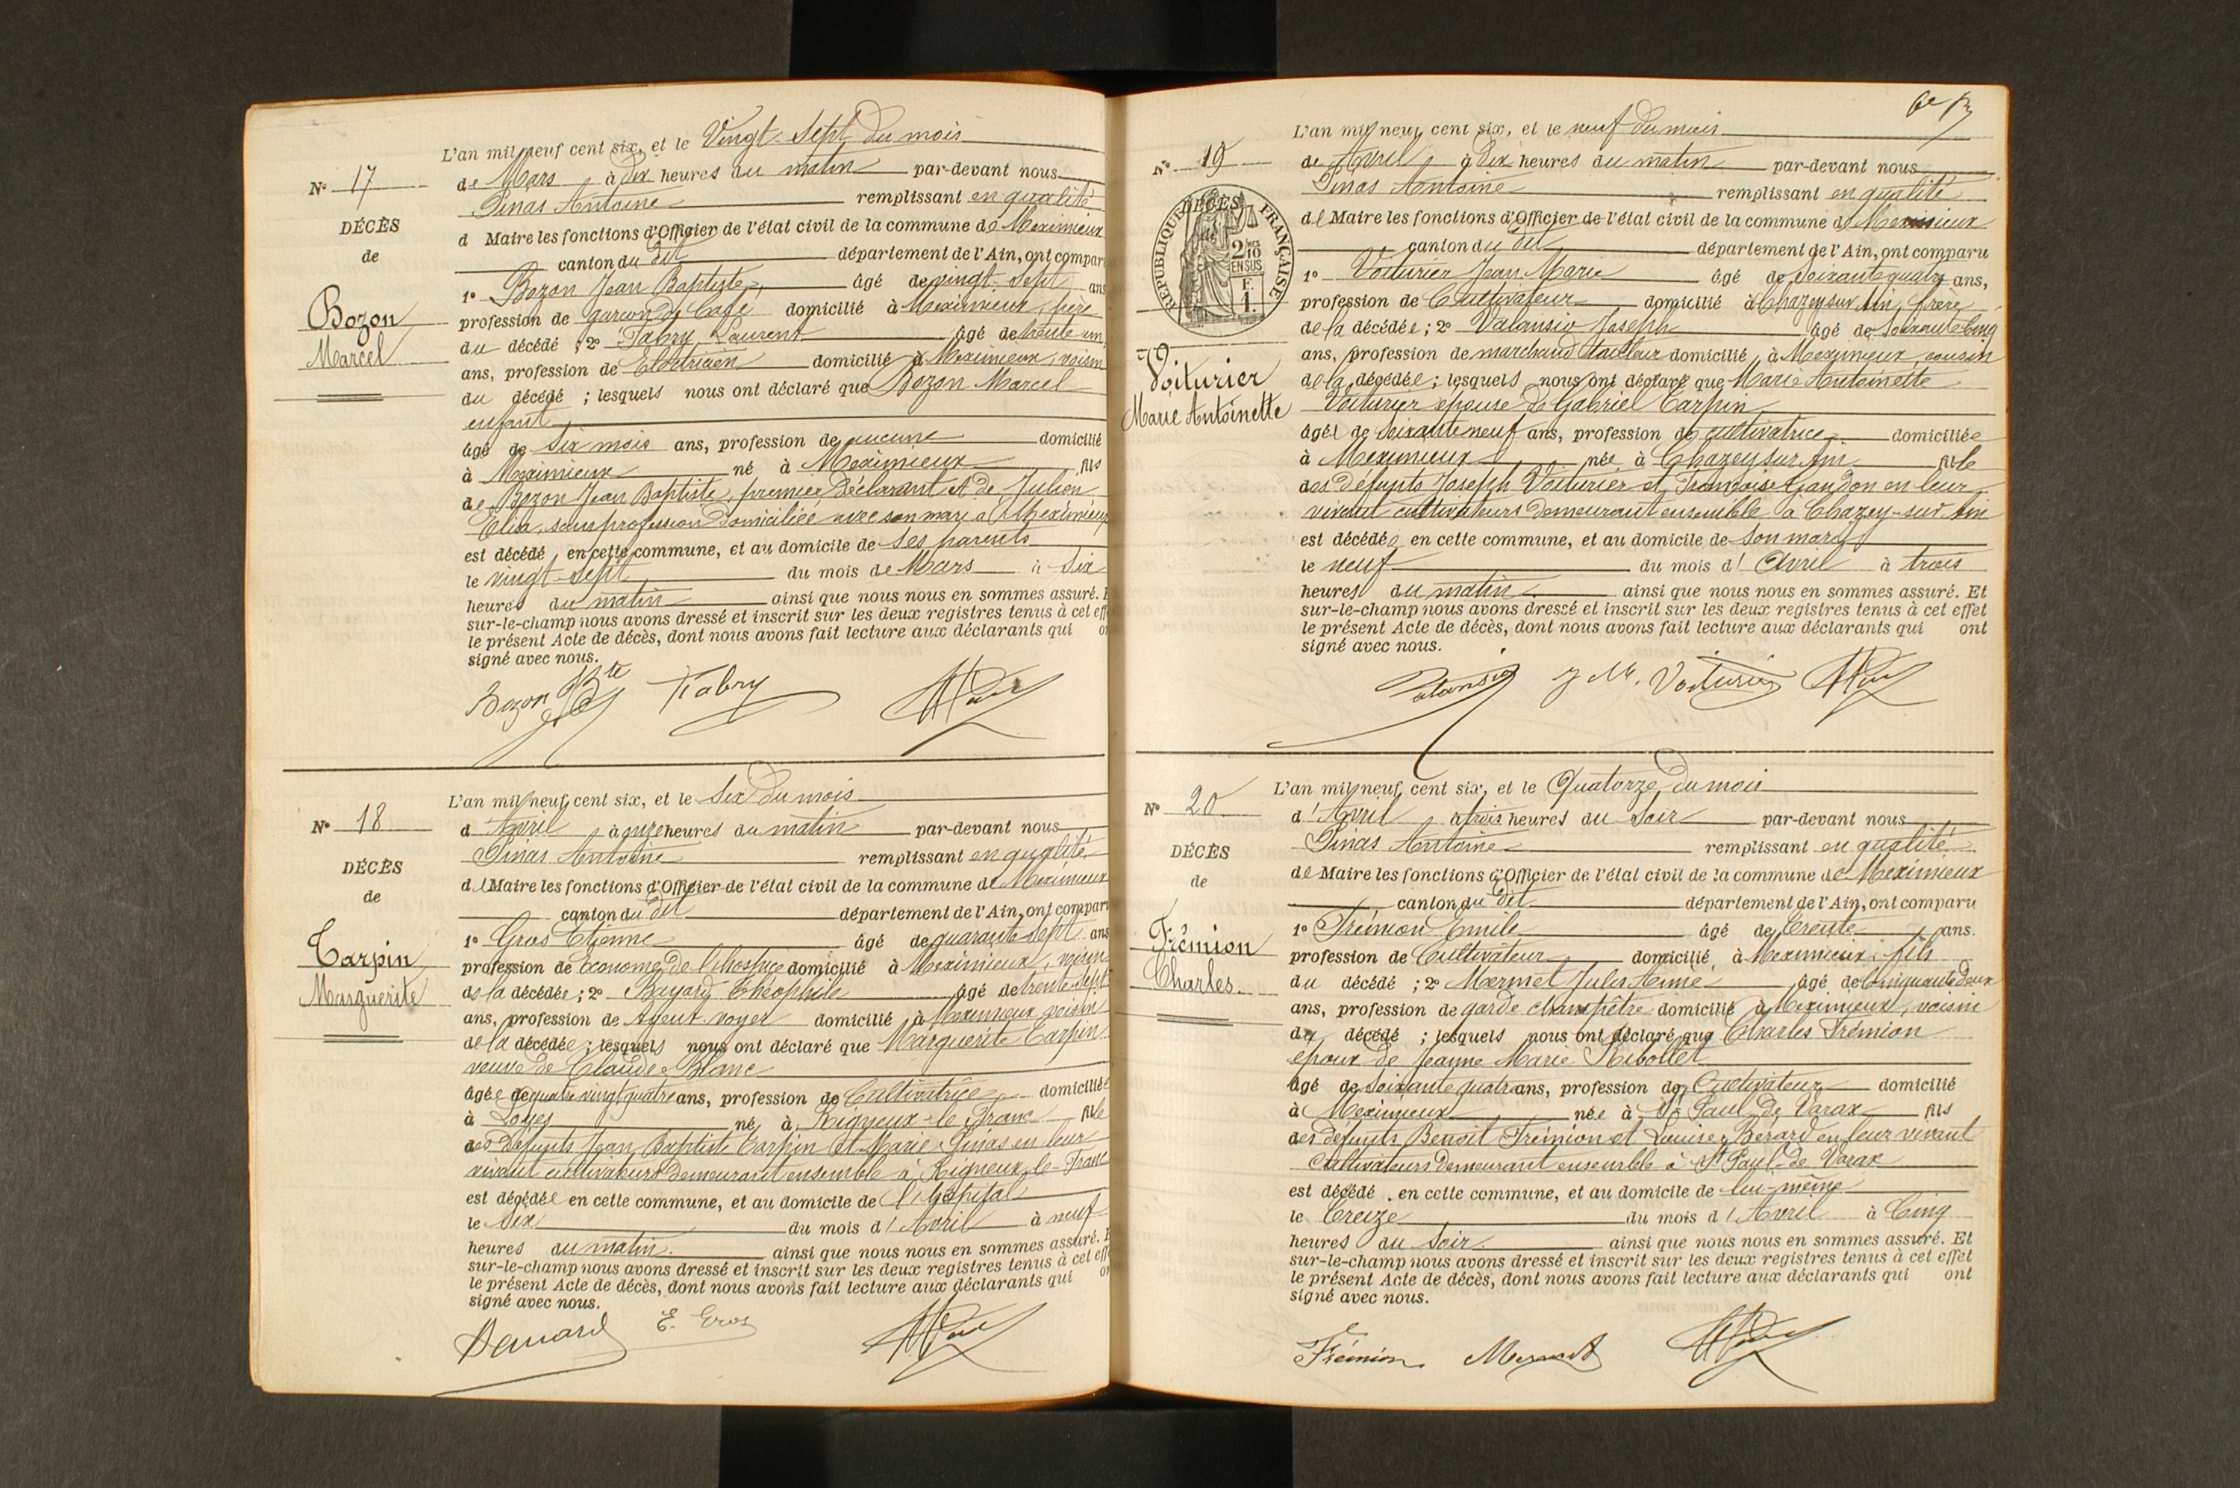 N° 17
DÉCÈS
de
Bozon
Marcel
L'an mil neuf cent six, et le Vingt-Sept du mois
de Mars à dix heures du matin par-devant nous
Pinas Antoine remplissant en qualité
d Maire les fonctions d'Officier de l'état civil de la commune de Meximieux
canton du dit département de l'Ain, ont compar
1° Bozon Jean Baptiste, âgé de vingt-sept ans
profession de garçon de Café domicilié à Meximieux, père
du décédé ; 2° Fabry Laurent âgé de trente un
ans, profession de Electricien domicilié à Meximieux, voisin
du décédé ; lesquels nous ont déclaré que Bozon Marcel
enfant
âgé de six mois ans, profession de aucune domicilié
à Meximieux né à Meximieux fils
de Bozon Jean Baptiste, premier déclarant et de Julien
Elisa, sans profession domiciliée avec son mary a Meximieux
est décédé en cette commune, et au domicile de ses parents
le vingt-sept du mois de Mars à six
heures du matin ainsi que nous nous en sommes assuré. E
sur-le-champ nous avons dressé et inscrit sur les deux registres tenus à cet eff
le présent Acte de décès, dont nous avons fait lecture aux déclarants qui on
signé avec nous.
Bozon Bte Fabry
N° 18
DÉCÈS
de
Carpin
Marguerite
L'an mil neuf cent six, et le Six du mois
d Avril à onze heures du matin par-devant nous
Pinas Antoine remplissant en qualité
d e Maire les fonctions d'Officier de l'état civil de la commune de Meximieux
canton du dit département de l'Ain, ont comparu
1° Gros Etienne âgé de quarante sept ans
profession de Econome de l'hospice domicilié à Meximieux, voisin
de la décédée ; 2° Bayard Théophile âgé de trente sept
ans, profession de Agent-voyer domicilié à Meximieux voisin
de la décédée ; lesquels nous ont déclaré que Marguerite Carpin
veuve de Claude Blanc
âgée de quatre vingt quatre ans, profession de Cultivatrice domiciliée
à Loyes né à Rigneux-le-Franc fille
des défunts Jean Baptiste Carpin et Marie Pinas en leur
vivant cultivateurs demeurant ensemble à Rigneux-le-Franc
est décédée en cette commune, et au domicile de l'Hôpital
le six du mois d'Avril à neuf
heures du matin ainsi que nous nous en sommes assuré. E
sur-le-champ nous avons dressé et inscrit sur les deux registres tenus à cet eff
le présent Acte de décès, dont nous avons fait lecture aux déclarants qui on
signé avec nous.
E. Gros
N° 19
RÉPUBLIQUE FRANÇAISE
DÉCÈS
2 10
EN SUS
F.
1.
Voiturier
Marie Antoinette
L'an mil neuf cent six, et le neuf du mois
de Avril à dix heures du matin par-devant nous
Pinas Antoine remplissant en qualité
de Maire les fonctions d'Officier de l'état civil de la commune de Meximieux
canton du dit département de l'Ain, ont comparu
1° Voiturier Jean Marie âgé de soixante quatre ans,
profession de Cultivateur domicilié à Chazey sur Ain, frère
de la décédée ; 2° Valansio Joseph âgé de soixante cinq
ans, profession de marchand tailleur domicilié à Meximieux, cousin
de la décédée ; lesquels nous ont déclaré que Marie Antoinette
Voiturier épouse de Gabriel Carpin
âgée de soixante neuf ans, profession de cultivatrice domiciliée
à Meximieux née à Chazey sur Ain fille
des défunts Joseph Voiturier et Françoise Gandon en leur
vivant cultivateurs demeurant ensemble à Chazey-sur-Ain
est décédée en cette commune, et au domicile de son mary
le neuf du mois d'Avril à trois
heures du matin ainsi que nous nous en sommes assuré. Et
sur-le-champ nous avons dressé et inscrit sur les deux registres tenus à cet effet
le présent Acte de décès, dont nous avons fait lecture aux déclarants qui ont
signé avec nous.
Valansio J M. Voiturier
N° 20
DÉCÈS
de
Frémion
Charles
L'an mil neuf cent six, et le Quatorze du mois
d'Avril à trois heures du Soir par-devant nous
Pinas Antoine remplissant en qualité
de Maire les fonctions d'Officier de l'état civil de la commune de Meximieux
canton du dit département de l'Ain, ont comparu
1° Frémion Emile âgé de trente ans.
profession de Cultivateur domicilié à Meximieux, fils
du décédé ; 2° Mermet Jules Aimé âgé de cinquante deux
ans, profession de garde champêtre domicilié à Meximieux, voisin
du décédé ; lesquels nous ont déclaré que Charles Frémion
époux de Jeanne Marie Ribollet
âgé de soixante quatre ans, profession de Cultivateur domicilié
à Meximieux née à St Paul de Varax fils
des défunts Benoit Frémion et Louise Bérard en leur vivant
cultivateurs demeurant ensemble à St Paul-de Varax
est décédé en cette commune, et au domicile de lui-même
le treize du mois d'Avril à Cinq
heures du Soir ainsi que nous nous en sommes assuré. Et
sur-le-champ nous avons dressé et inscrit sur les deux registres tenus à cet effet
le présent Acte de décès, dont nous avons fait lecture aux déclarants qui ont
signé avec nous.
Frémion Mermet